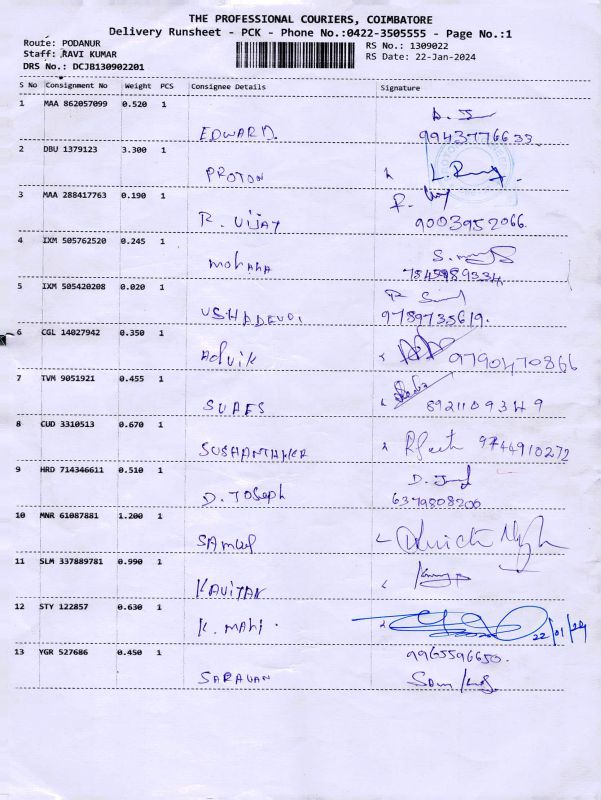 THE PROFESSIONAL COURIERS, COIMBATORE
Delivery Runsheet - PCK - Phone No.:0422-3505555 - Page No.:1
Route: PODANUR
RS No.: 1309022
Staff: RAVI KUMAR
RS Date: 22-Jan-2024
DRS No.: DCJB130902201
S No Consignment No Weight PCS Consignee Details Signature
1 MAA 862057099 0.520 1
EDWARD. 9943776633
2 DBU 1379123 3.300 1
PROTON
3 MAA 288417763 0.190 1
R. VIJAY 9003952066.
4 IXM 505762520 0.245 1
Mohana
5 IXM 505420208 0.020 1
USHADEVDI 9789735619.
6 CGL 14027942 0.350 1
Advik 9790470866
7 TVM 9051921 0.455 1
8921109349
8 CUD 3310513 0.670 1
9744910272
9 HRD 714346611 0.510 1
D. Joseph 6379808200
10 MNR 61087881 1.200 1
11 SLM 337889781 0.990 1
12 STY 122857 0.630 1
K. MANI. 22/01/24
13 YGR 527686 0.450 1 9965596650.
SARAVAN